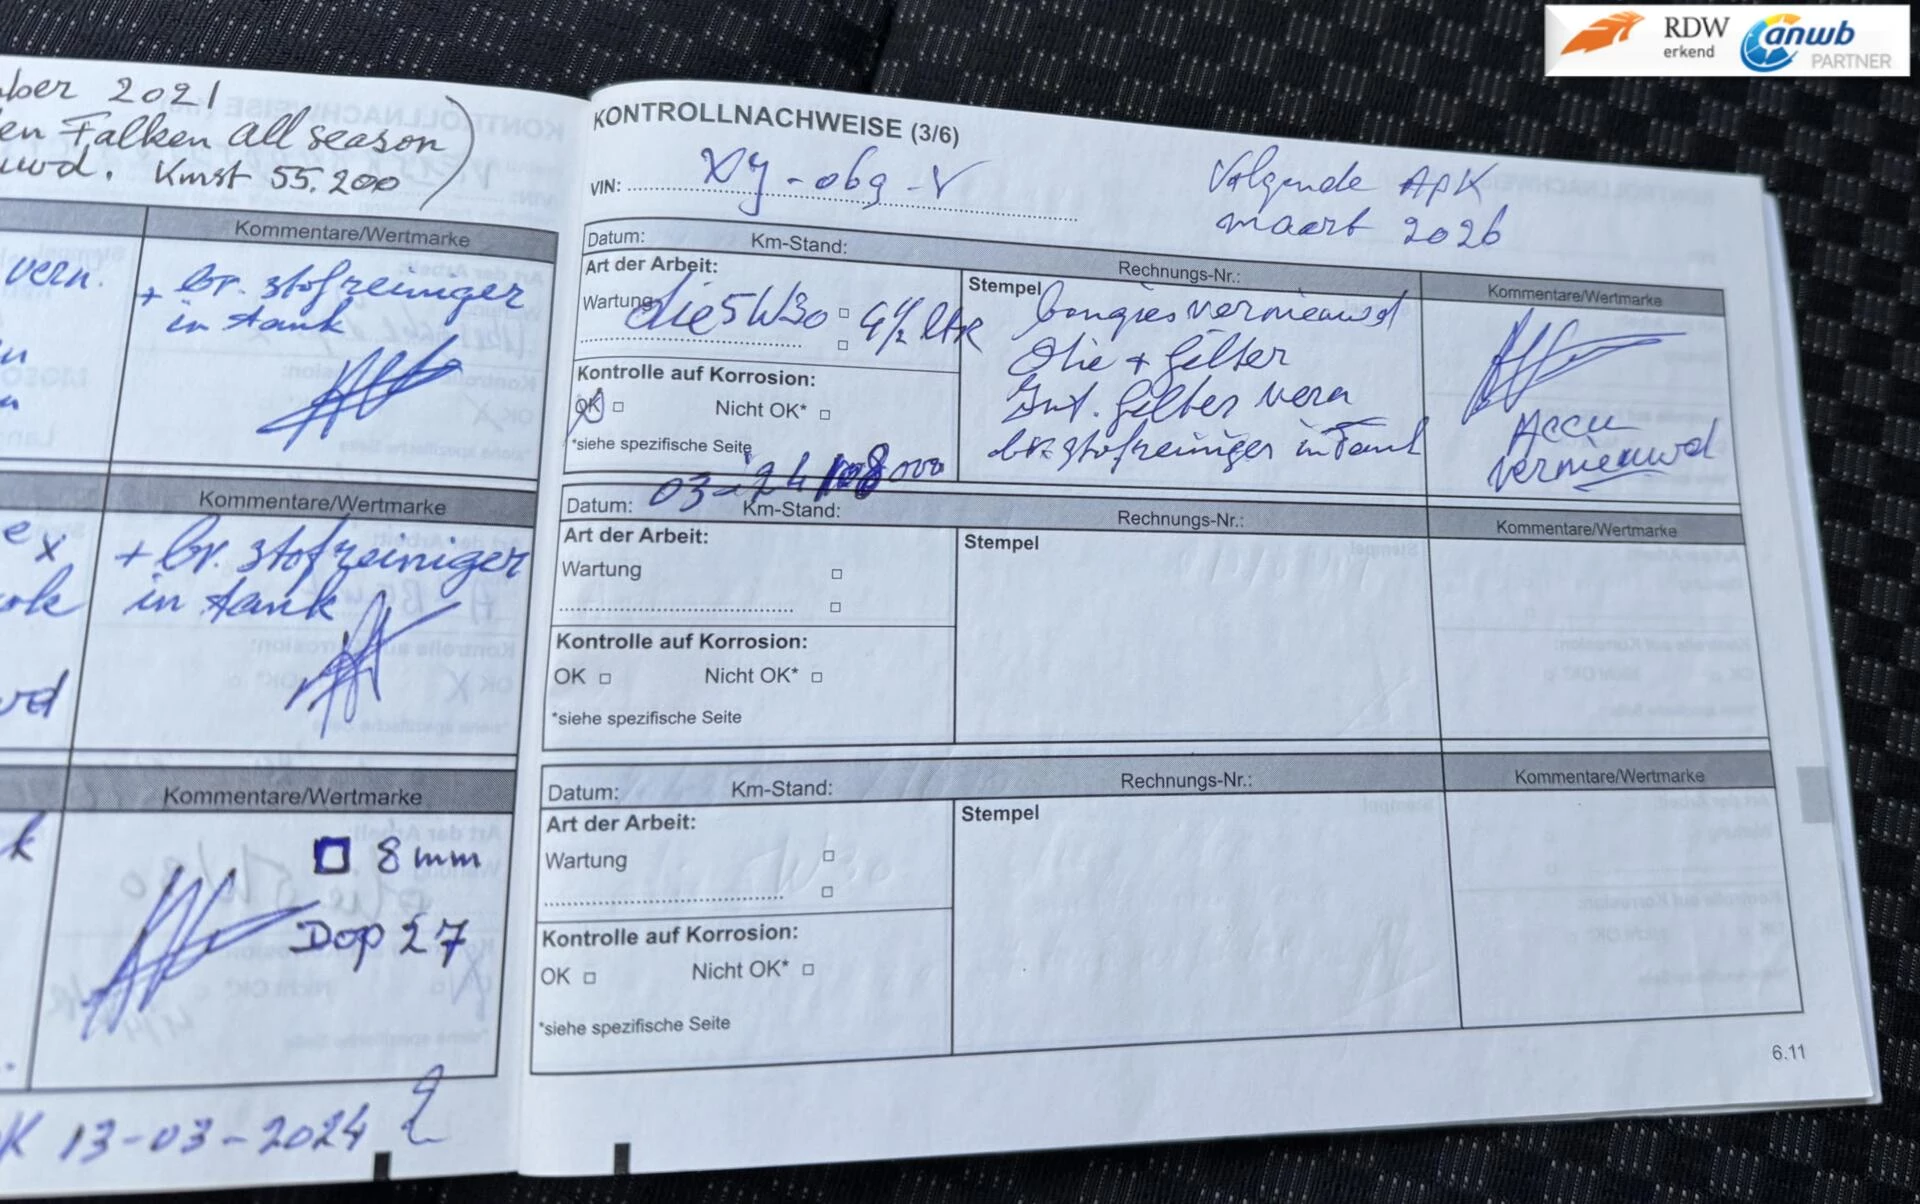 RDW
erkend
anwb
PARTNER
2021
en Falken all season
Kmst 55.200
Kommentare/Wertmarke
vern.
+ br. stofreiniger
in tank
Kommentare/Wertmarke
+ br. stofreiniger
in tank
Kommentare/Wertmarke
8 mm
Dop 27
13-03-2024
KONTROLLNACHWEISE (3/6)
VIN:
Volgende APK
maart 2026
Datum: Km-Stand: Rechnungs-Nr.: Kommentare/Wertmarke
Art der Arbeit:
Wartung
olie 5W30 4½ ltr
Kontrolle auf Korrosion:
OK Nicht OK*
*siehe spezifische Seite
Stempel
bougies vernieuwd
Olie + filter
Int. filter vern
br. stofreiniger in Tank
Accu
vernieuwd
Datum: Km-Stand: Rechnungs-Nr.: Kommentare/Wertmarke
Art der Arbeit:
Wartung
Kontrolle auf Korrosion:
OK Nicht OK*
*siehe spezifische Seite
Stempel
Datum: Km-Stand: Rechnungs-Nr.: Kommentare/Wertmarke
Art der Arbeit:
Wartung
Kontrolle auf Korrosion:
OK Nicht OK*
*siehe spezifische Seite
Stempel
6.11